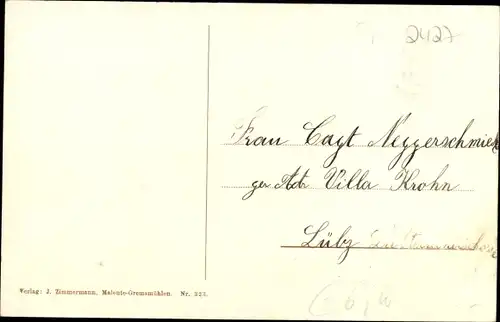 2427
Frau Capt Neggerschmiek
ger Adr Villa Krohn
Lübz
Verlag: J. Zimmermann, Malente-Gremsmühlen. Nr. 223.